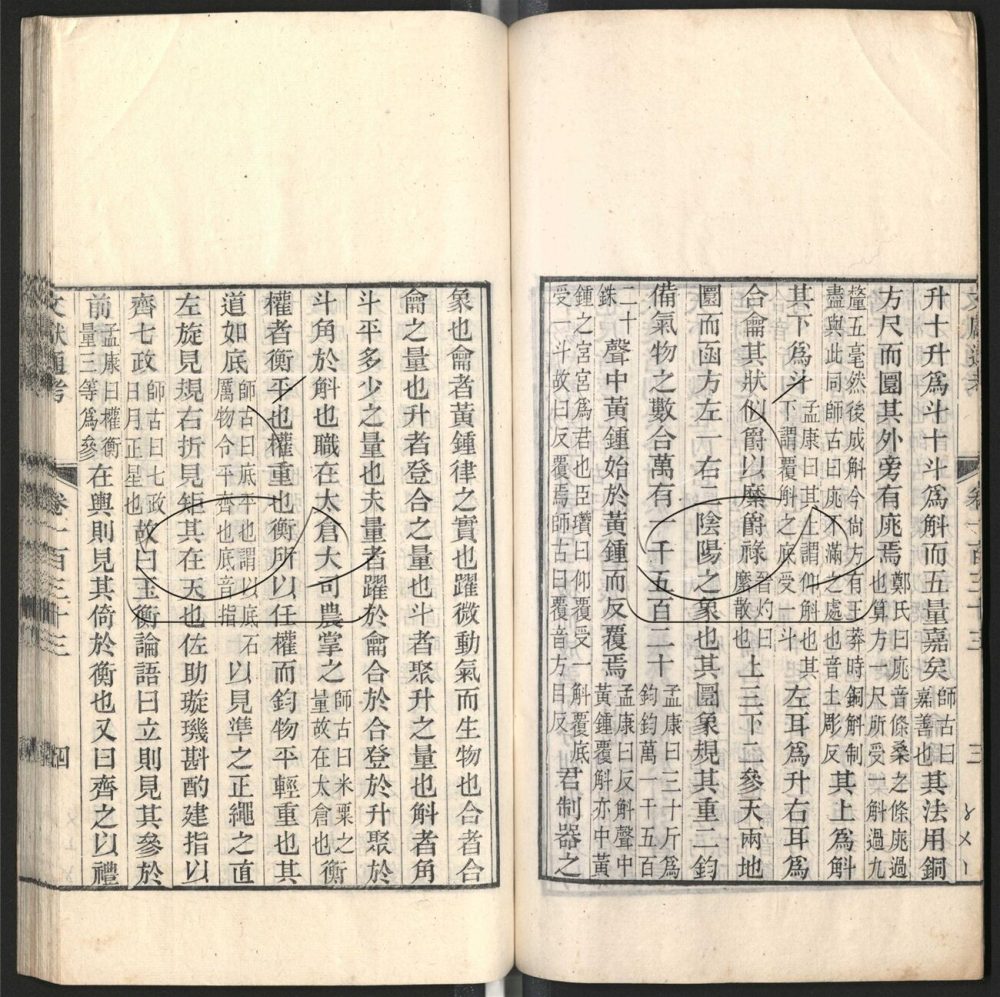 升十升爲斗十斗爲斛而五量嘉矣師古曰嘉善也其法用銅
方尺而圜其外旁有庣焉鄭氏曰庣音條桑之條庣過也算方一尺所受一斛過九
釐五毫然後成斛今尚方有王莽時銅斛制盡與此同師古曰庣不滿之處也音土彫反其上爲斛
其下爲斗孟康曰其上謂仰斛也其下謂覆斛之底受一斗左耳爲升右耳爲
合龠其狀似爵以縻爵祿晉灼曰縻散也上三下二參天兩地
圜而函方左一右二陰陽之象也其圜象規其重二鈞
備氣物之數合萬有一千五百二十孟康曰三十斤爲鈞鈞萬一千五百
二十銖聲中黃鍾始於黃鍾而反覆焉孟康曰反斛聲中黃鍾覆斛亦中黃
鍾之宮宮爲君也臣瓚曰仰覆受一斛覆底受一斗故曰反覆焉師古曰覆音方目反君制器之
文獻通考 卷一百三十三 三
象也龠者黃鍾律之實也躍微動氣而生物也合者合
龠之量也升者登合之量也斗者聚升之量也斛者角
斗平多少之量也夫量者躍於龠合於合登於升聚於
斗角於斛也職在太倉大司農掌之師古曰米粟之量故在太倉也衡
權者衡平也權重也衡所以任權而鈞物平輕重也其
道如底師古曰底平也謂以底石厲物令平齊也底音指以見準之正繩之直
左旋見規右折見矩其在天也佐助璇璣斟酌建指以
齊七政師古曰七政日月五星也故曰玉衡論語曰立則見其參於
前孟康曰權衡量三等爲參在輿則見其倚於衡也又曰齊之以禮
文獻通考 卷一百三十三 四